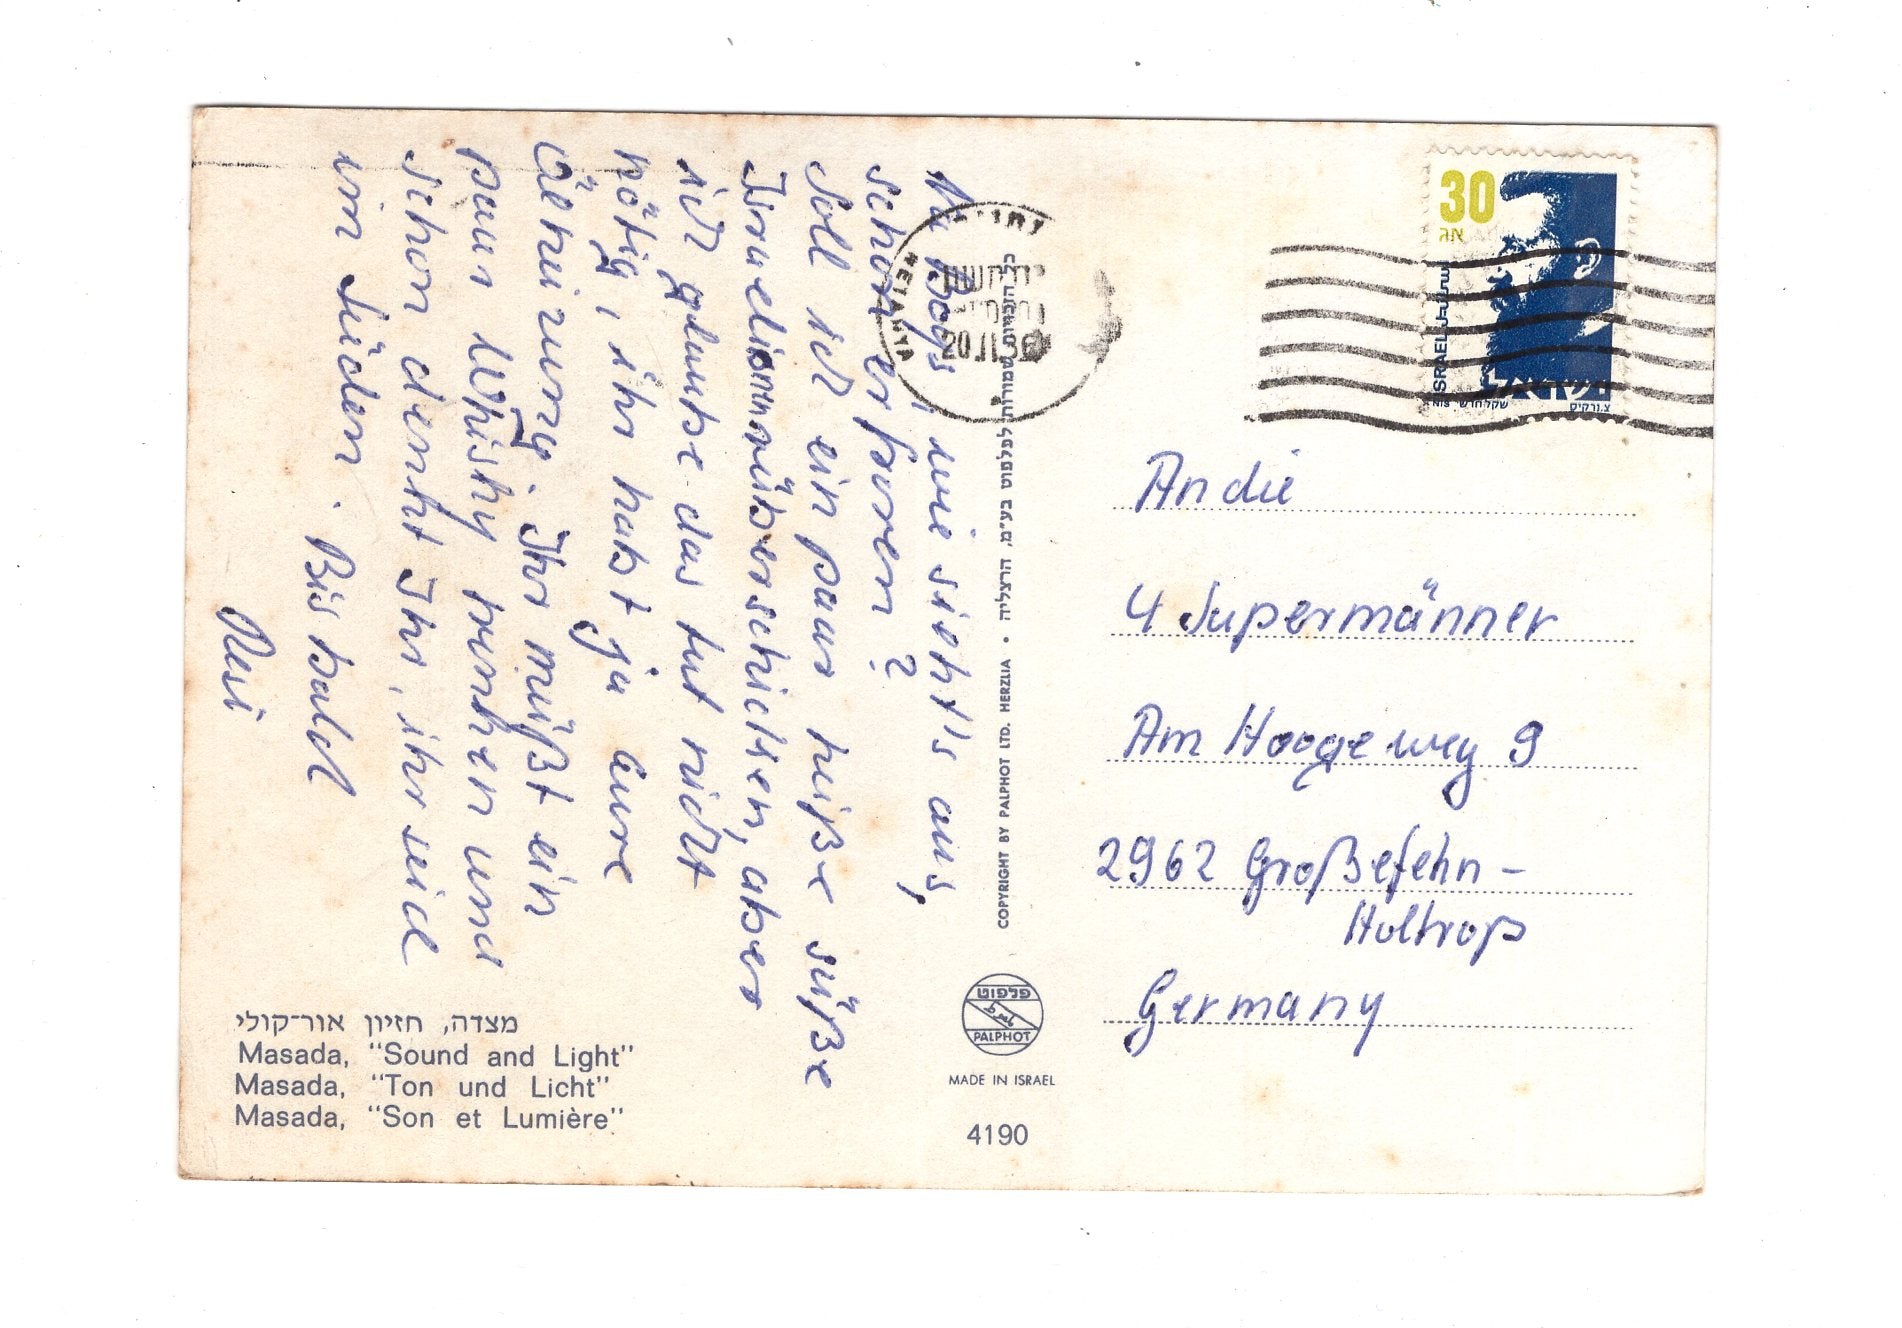 Na Boys, wie sieht's aus,
schon erfroren?
Soll ich ein paar heiße süße
Israelinnen rüberschicken, aber
ich glaube das tut nicht
nötig, ihr habt ja eure
Heizung. Ihr müßt ein
paar Whisky trinken und
schon denkt Ihr, ihr seid
im Süden. Bis bald
מצדה, חזיון אור-קולי
Masada, "Sound and Light"
Masada, "Ton und Licht"
Masada, "Son et Lumière"
NETANYA
20.11.86
COPYRIGHT BY PALPHOT LTD. HERZLIA • כל הזכויות שמורות לפלפוט בע"מ, הרצליה
פלפוט
PALPHOT
MADE IN ISRAEL
4190
30
אג
ISRAEL
ישראל
NIS שקל חדש
Andie
4 Supermänner
Am Hoogeweg 9
2962 Großefehn-
Holtrop
Germany